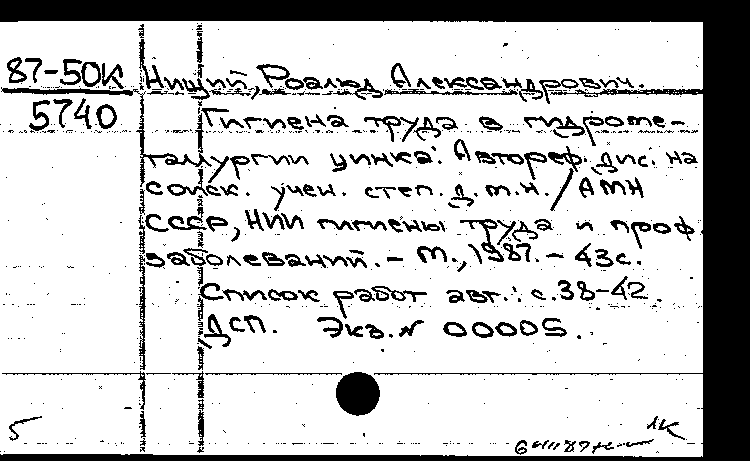 87-50К
5740
Нищий, Роальд Александрович.
Гигиена труда в гидроме-
таллургии цинка: Автореф. дис. на
соиск. учен. степ. д.м.н. / АМН
СССР, НИИ гигиены труда и проф.
заболеваний. - М., 1987. - 43с.
Список работ авт.: с.38-42.
ДСП. Экз. N 00005.
5
1К